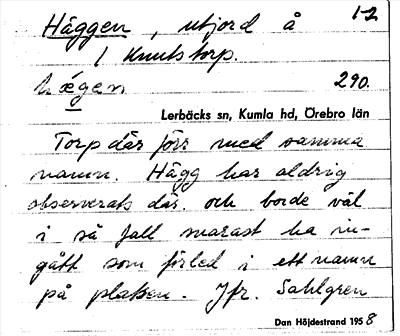 Häggen, utjord å 1-2
1 Knutstorp.
hægen 290.
Lerbäcks sn, Kumla hd, Örebro län
Torp där förr med samma
namn. Hägg har aldrig
observerats där och borde väl
i så fall snarast ha in-
gått som förled i ett namn
på platsen. Jfr. Sahlgren
Dan Höjdestrand 1958